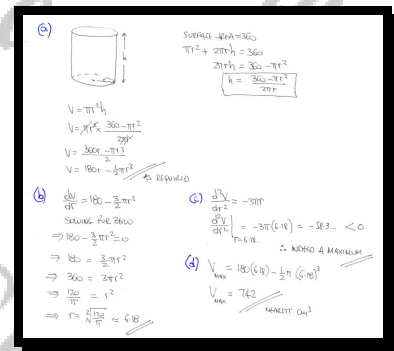 (a)
h
SURFACE AREA = 360
πr² + 2πrh = 360
2πrh = 360 - πr²
h = 360 - πr² / 2πr
V = πr²h
V = πr² × 360 - πr² / 2πr
V = 360r - πr³ / 2
V = 180r - ½πr³
AS REQUIRED
(b) dV/dr = 180 - 3/2 πr²
SOLVING FOR ZERO
⇒ 180 - 3/2 πr² = 0
⇒ 180 = 3/2 πr²
⇒ 360 = 3πr²
⇒ 120/π = r²
⇒ r = √120/π ≈ 6.18
(c) d²V/dr² = -3πr
d²V/dr² | r=6.18... = -3π(6.18) = -58.3... < 0
∴ INDEED A MAXIMUM
(d) V MAX = 180(6.18) - ½π(6.18)³
V MAX = 742
NEAREST cm³